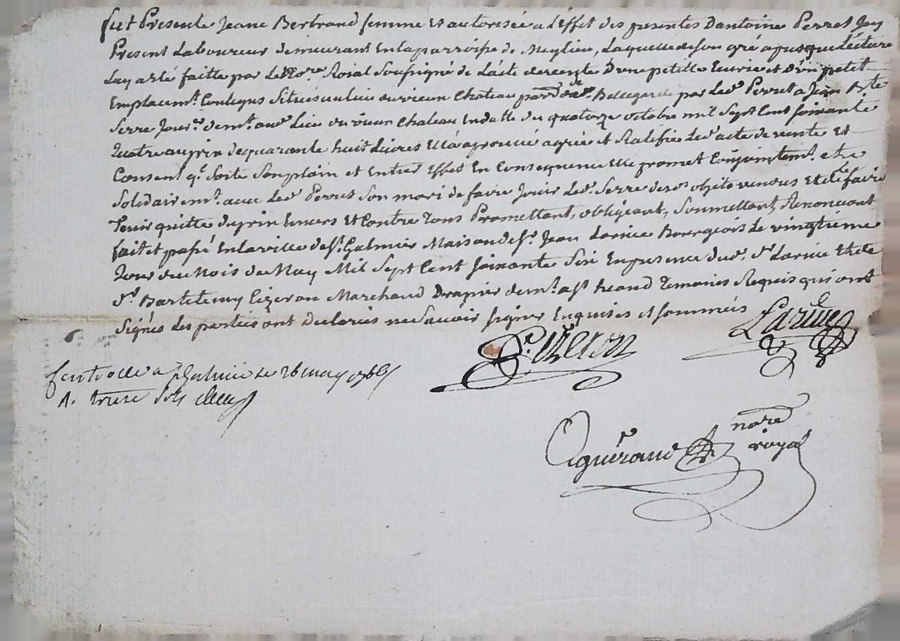 fut Presente Jeane Bertrand femme Et autorisée a Leffet des presentes Dantoine Perret Icy
Present Laboureur demeurant En la parroisse de Meylieu, Laquelle de son gré apres que Lecture
Luy a eté faitte par Le No.re Roial Soussigné de L'acte de vente D'une petitte Ecurie et D'un petit
Emplacem.t Contigus Situés au lieu du vieux Chateau par Led. Perret a Jean
Serre Jour.r dem.t au d. Lieu du vieux Chateau En datte du quatorze octobre mil Sept Cent soixante
quatre au prix de quarante huit Livres Elle a aprouvé agréé et Ratifié Led. acte de vente Et
Consent q.l Sorte Son plain et Entier Effet En Consequence Elle promet Conjointem.t et
Solidairem.t avec Led. Perret Son mari de faire Jouir Led. Serre des d. objets vendus Et de Le faire
Tenir quitte du prix Envers Et Contre Tous Promettant, obligeant, Soumettant, Renonceant
fait et passé En La ville de S.t Galmier Maison de S.r Jean Larive Bourgeois Le vingtieme
Jour du Mois de May Mil Sept Cent Soixante Six En presence dud. S.r Larive Et de
S.r Bartelemy Vizeron Marchand Drapier dem.t Temoins Requis qui ont
Signés Les parties ont declarés ne Savoir Signer Enquises et Sommées
Larive
Vizeron
Controllé a S.t Galmier le 26 may 1766
R. treize Sols
nore
royal